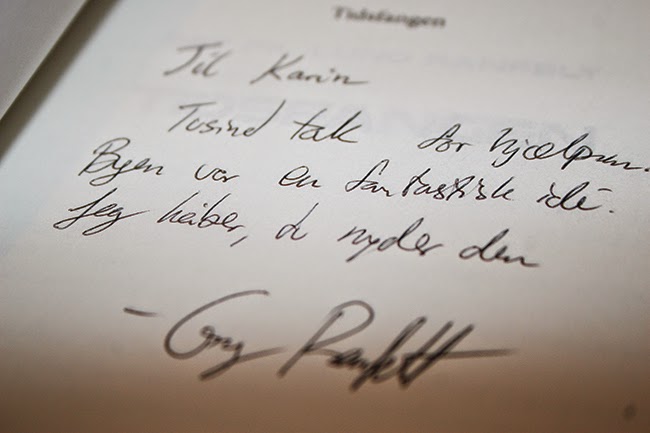 Tidsfangen
Til Karin
Tusind tak for hjælpen.
Byen var en fantastisk idé.
Jeg håber, du nyder den